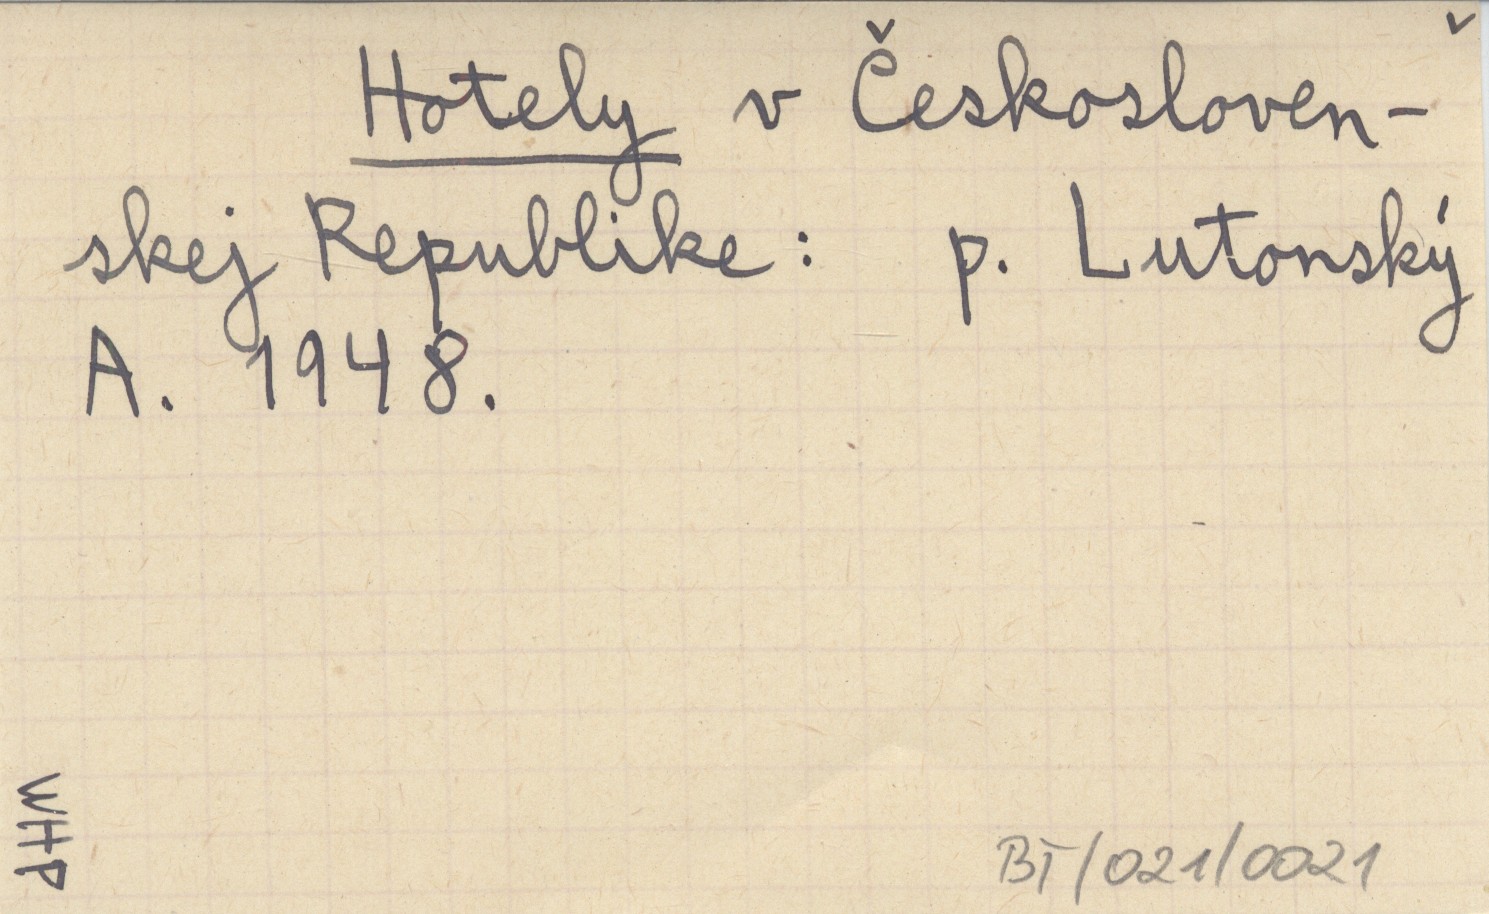 Hotely v Českosloven-
skej Republike: p. Lutonský
A. 1948.
WHP
BT/021/0021